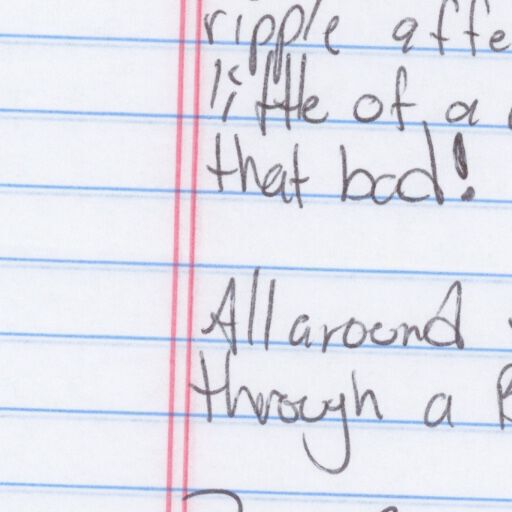 ripple affe
little of a
that bad!
All around
through a